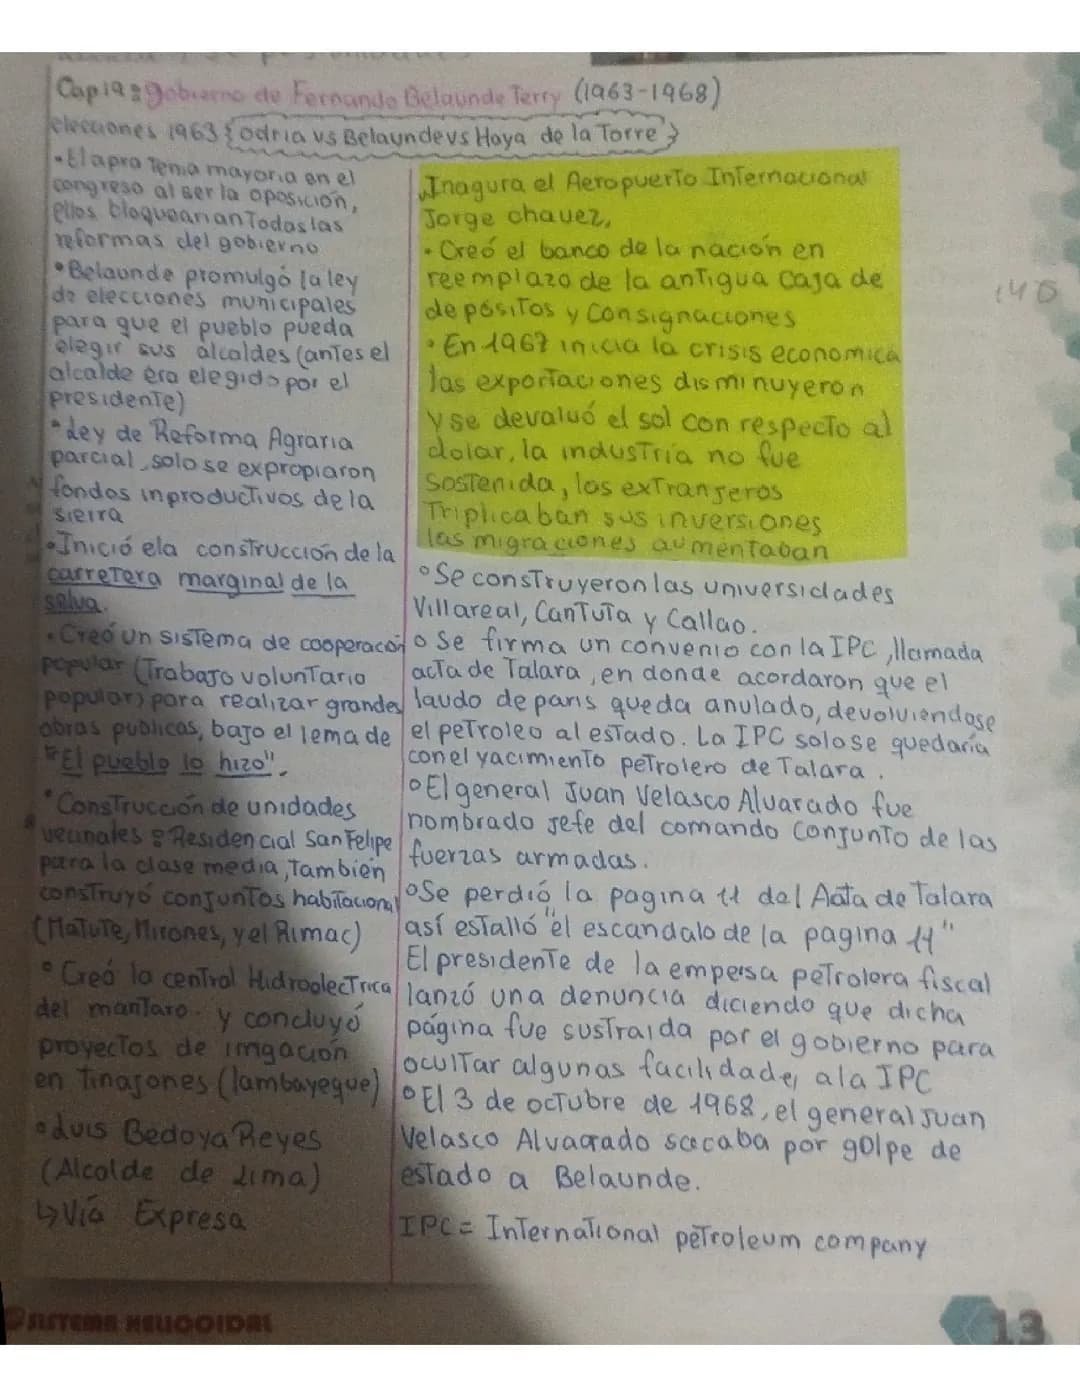 Cap 19: gobierno de Fernando Belaunde Terry (1963-1968)
elecciones 1963 {odria vs Belaunde vs Haya de la Torre}
•El apra Tenia mayoria en el
congreso al ser la oposición,
ellos bloquearian Todas las
reformas del gobierno
•Belaunde promulgó la ley
de elecciones municipales
para que el pueblo pueda
elegir sus alcaldes (antes el
alcalde era elegido por el
presidente)
•Ley de Reforma Agraria
parcial, solo se expropiaron
fondos inproductivos de la
sierra
•Inició ela construcción de la
carretera marginal de la
selva.
•Creó un sistema de cooperación
popular (Trabajo voluntario
popular) para realizar grandes
obras publicas, bajo el lema de
"El pueblo lo hizo".
•Construcción de unidades
vecinales: Residencial San Felipe
para la clase media, También
construyó conjuntos habitacional
(Matute, Mirones, y el Rimac)
•Creó la central HidroelecTrica
del mantaro. y concluyó
proyectos de irrigación
en Tinajones (lambayeque)
•Luis Bedoya Reyes
(Alcalde de Lima)
↳Via Expresa
Inagura el Aeropuerto Internacional
Jorge chavez,
•Creó el banco de la nación en
reemplazo de la antigua caja de
depósitos y consignaciones
•En 1967 inicia la crisis economica
las exportaciones disminuyeron
y se devaluó el sol con respecto al
dolar, la industria no fue
sostenida, los extranjeros
Triplicaban sus inversiones
las migraciones aumentaban
°Se construyeron las universidades
Villareal, Cantuta y Callao.
°Se firma un convenio con la IPC, llamada
acta de Talara, en donde acordaron que el
laudo de paris queda anulado, devolviendose
el petroleo al estado. La IPC solo se quedaria
con el yacimiento petrolero de Talara.
°El general Juan Velasco Alvarado fue
nombrado jefe del comando conjunto de las
fuerzas armadas.
°Se perdió la pagina 11 del Acta de Talara
así estalló "el escandalo de la pagina 11"
El presidente de la empersa petrolera fiscal
lanzó una denuncia diciendo que dicha
página fue sustraida por el gobierno para
ocultar algunas facilidade, a la IPC
°El 3 de octubre de 1968, el general Juan
Velasco Alvarado sacaba por golpe de
estado a Belaunde.
IPC= International petroleum company
SISTEMA HELICOIDAL
13